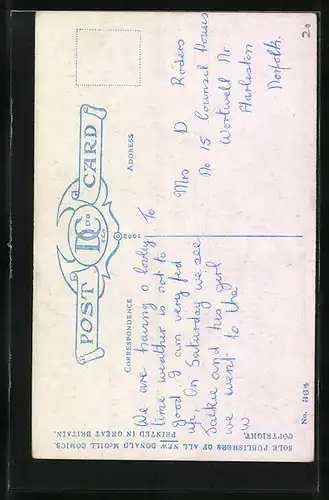 20
POST CARD
CORRESPONDENCE
ADDRESS
We are having a lovely
time weather is not to
good. I am very fed
up. On Saturday we see
Jackie and his girl
we went to the
w
To
Mrs D Roders
No 15 Counsil Houses
Wortwell Nr
Harleston
Norfolk.
No. 864
SOLE PUBLISHERS OF ALL NEW DONALD McGILL COMICS.
COPYRIGHT. PRINTED IN GREAT BRITAIN.